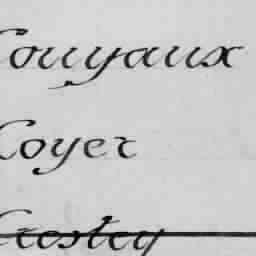 Couyaux
Coyer
Crosley